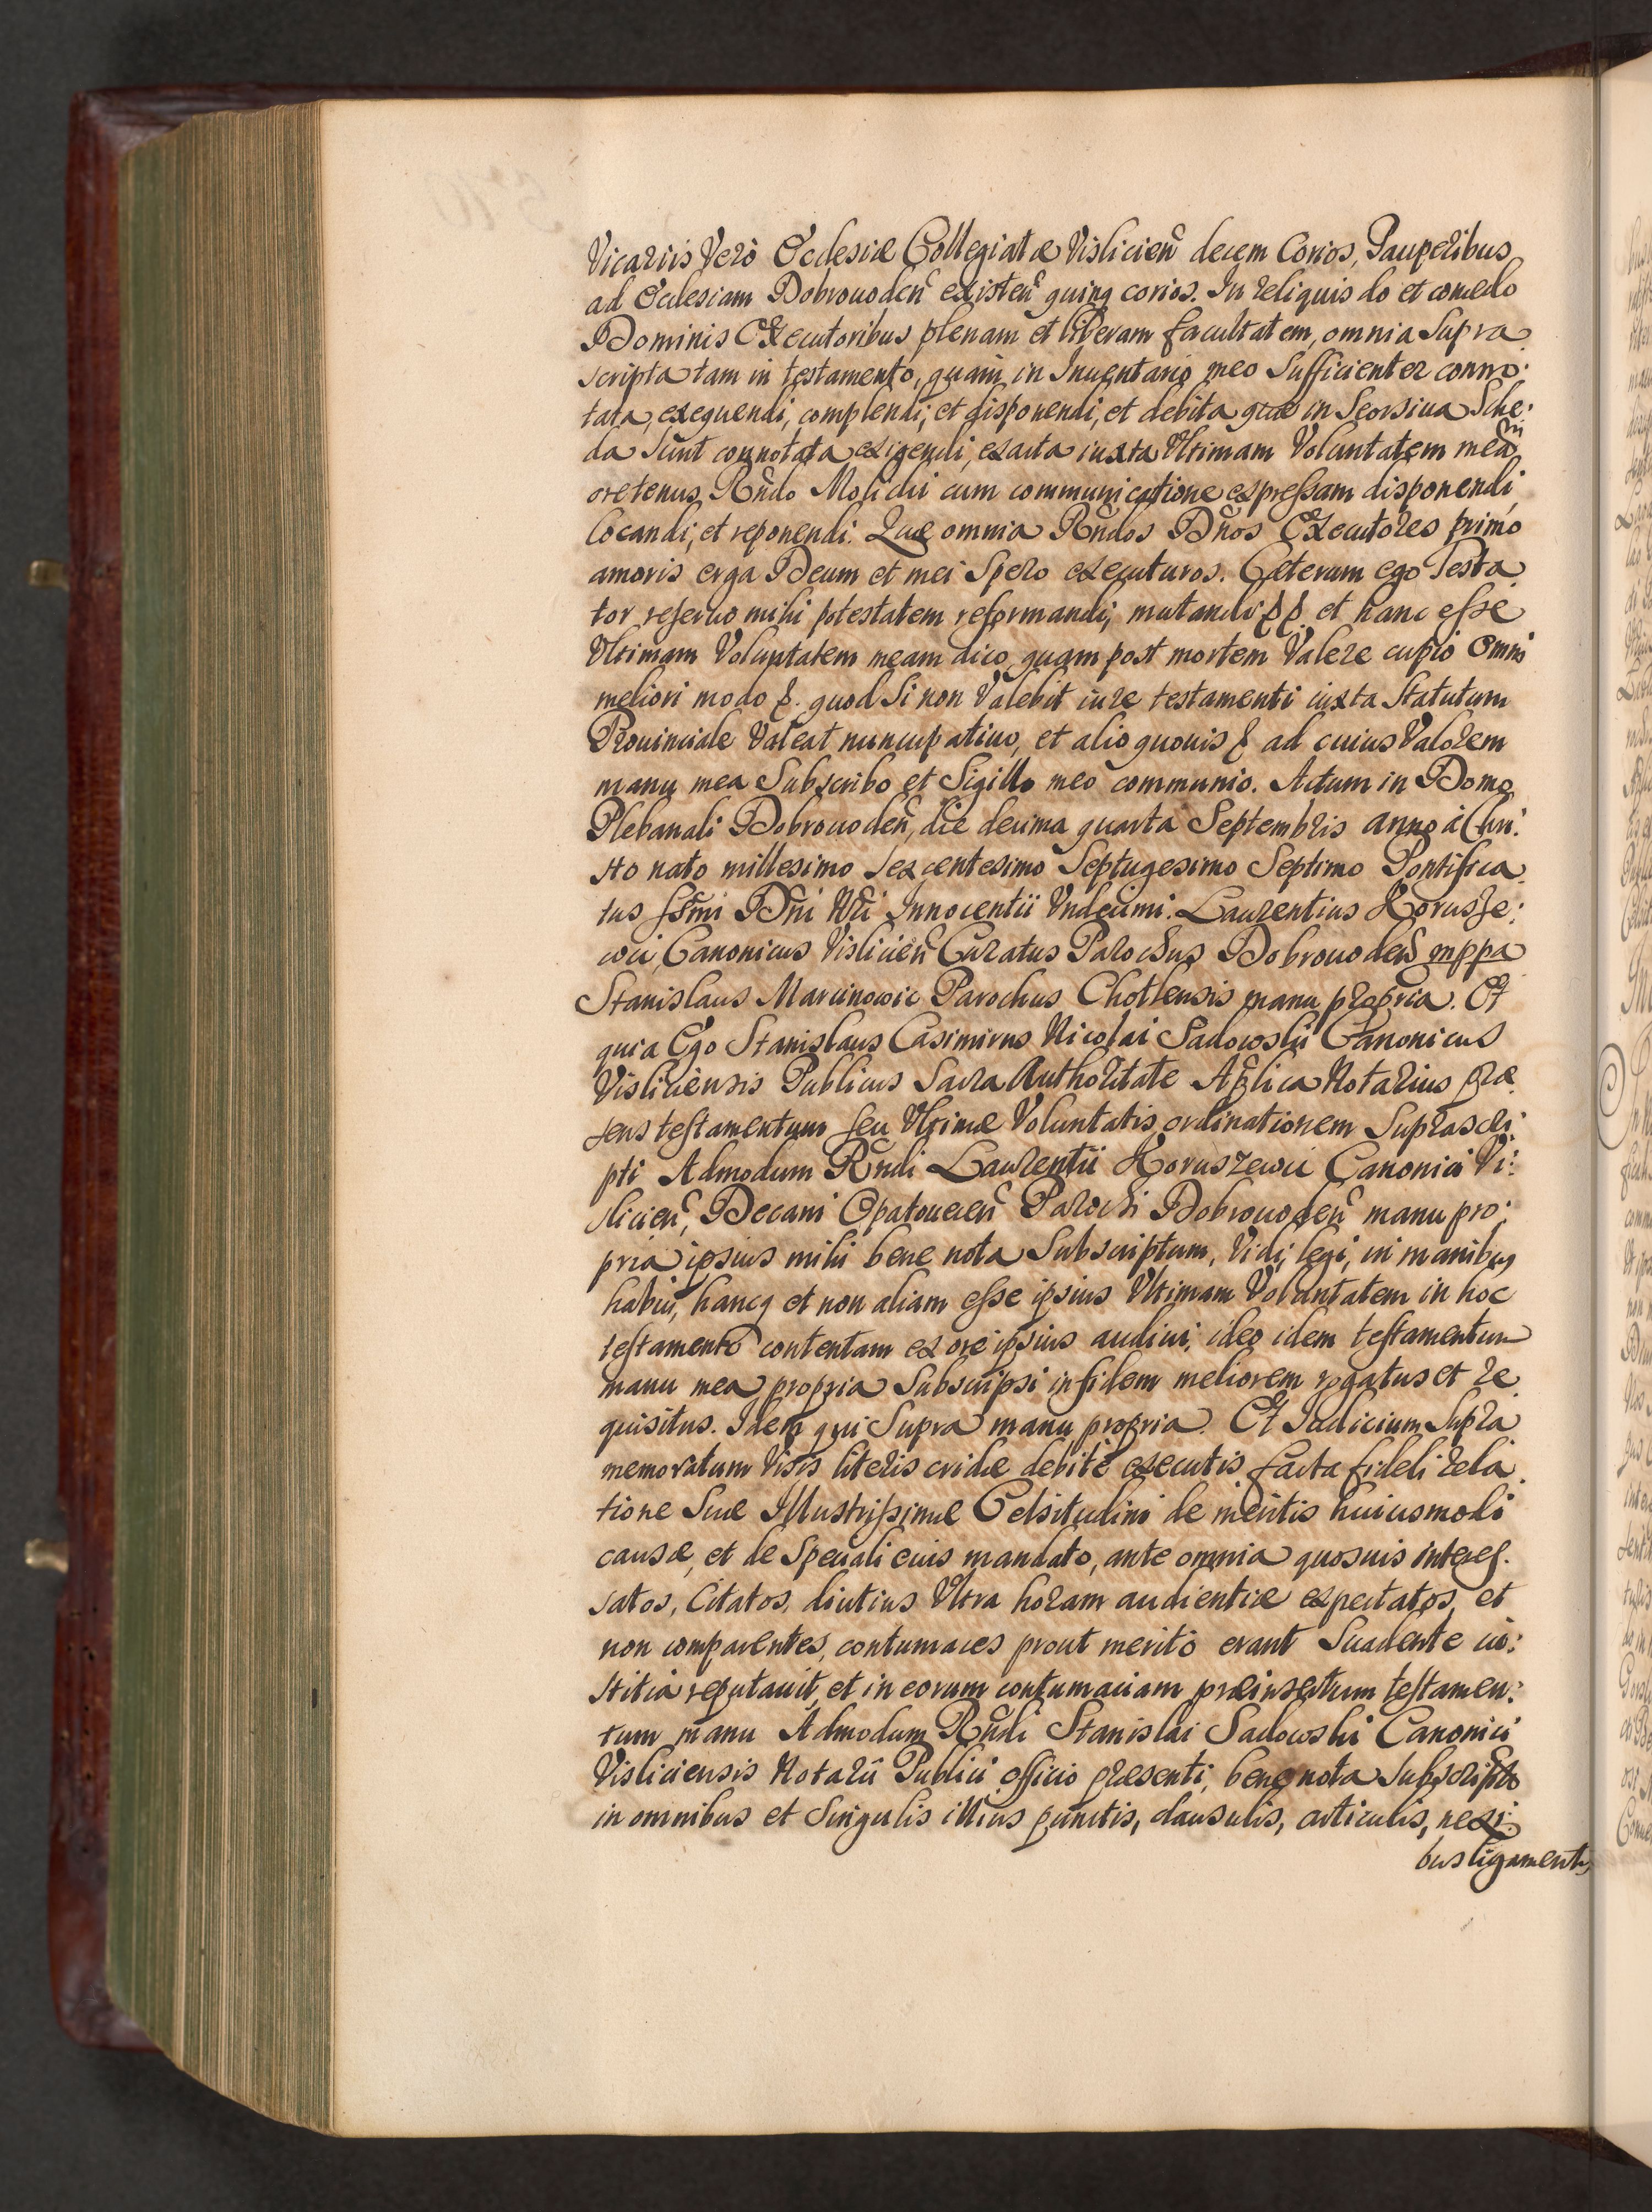 Vicariis Vero Ecclesiæ Collegiatæ Vislicien̄ decem Corios, Pauperibus
ad Ecclesiam Dobrouoden̄ existen̄ quinq corios. In reliquis do et concedo
Dominis Executoribus plenam et liberam facultatem, omnia Supra
scripta tam in testamento, quàm in Inuentario meo Sufficienter conno:
tata, exequendi, complendi, et disponendi, et debita quæ in Seorsiua Sche:
da sunt connotata exigendi, exacta iuxta Vltimam Voluntatem meam
oretenus Rndo Molicki cum communicatione expressam disponendi,
locandi, et reponendi. Quæ omnia Rndos Dnos Executores primo
amoris erga Deum et mei Spero executuros. Cæterum ego Testa
tor reseruo mihi potestatem reformandi, mutandi et hanc esse
Vltimam Voluntatem meam dico, quam post mortem Valere cupio Omni
meliori modo quod Si non Valebit iure testamenti iuxta Statutum
Prouinciale Valeat nuncupatiuo, et alio quouis ad cuius Valorem
manu mea Subscribo et Sigillo meo communio. Actum in Domo
Plebanali Dobrouoden̄, die decima quarta Septembris anno à Chri:
sto nato millesimo sexcentesimo Septugesimo Septimo Pontifica
tus SSmi Dni Nri Innocentii Vndecimi. Laurentius Korusze:
wic, Canonicus Vislicien̄ Curatus Parochus Dobrouoden̄ mppa
Stanislaus Marcinowic Parochus Chotlensis manu propria. Et
quia Ego Stanislaus Casimirus Nicolai Sadowski Canonicus
Visliciensis Publicus Sacra Authoritate Aplica Notarius præ
sens testamentum seu Vltimæ Voluntatis ordinationem Suprascri:
pti Admodum Rndi Laurentii Koruszewic Canonici Vi:
slicien̄, Decani Opatouecen̄ Parochi Dobrouoden̄ manu pro:
pria ipsius mihi bene nota Subscriptum, Vidi, legi, in manibus
habui, hancq et non aliam esse ipsius Vltimam Voluntatem in hoc
testamento contentam ex ore ipsius audiui, ideo idem testamentum
manu mea propria Subscripsi in fidem meliorem rogatus et re
quisitus. Idem qui Supra manu propria. Et Iudicium Supra
memoratum Visis literis cridæ debitè executis facta fideli rela
tione Suæ Illustrissimæ Celsitudini de meritis huiusmodi
causæ, et de Speciali eius mandato, ante omnia quosuis interes.
satos, Citatos, diutius Vltra horam audientiæ expectatos, et
non comparentes, contumaces prout meritò erant Suadente iu:
stitia reputauit, et in eorum contumaciam præinsertum testamen:
tum manu Admodum Rndi Stanislai Sadowski Canonici
Visliciensis Notarii Publici officio præsenti, bene nota Subscripto
in omnibus et Singulis illius punctis, clausulis, articulis, nexi:
bus ligamentis